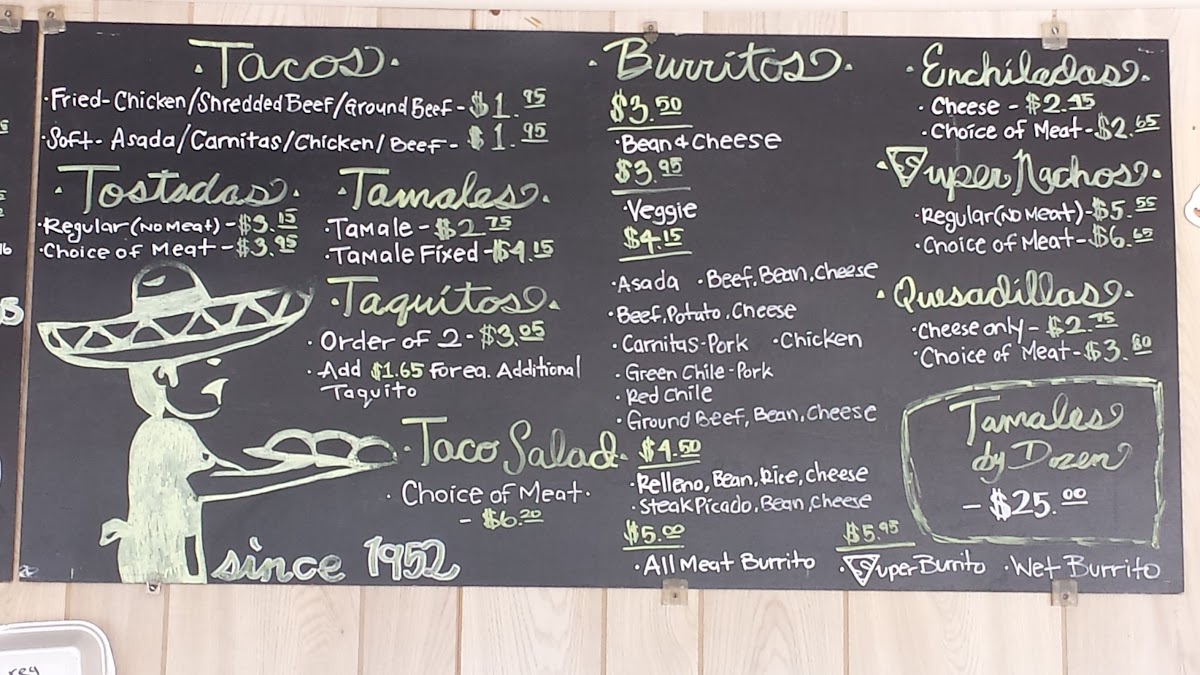 Tacos
Fried-Chicken/Shredded Beef/Ground Beef - $1.95
Soft- Asada/Carnitas/Chicken/Beef - $1.95
Tostadas
Regular (No Meat) - $3.15
Choice of Meat - $3.95
Tamales
Tamale - $2.75
Tamale Fixed - $4.15
Taquitos
Order of 2 - $3.05
Add $1.65 For ea. Additional
Taquito
Taco Salad
Choice of Meat
- $6.20
since 1952
Burritos
$3.50
Bean & Cheese
$3.95
Veggie
$4.15
Asada · Beef, Bean, Cheese
Beef, Potato, Cheese
Carnitas-Pork · Chicken
Green Chile-Pork
Red Chile
Ground Beef, Bean, Cheese
$4.50
Relleno, Bean, Rice, Cheese
Steak Picado, Bean, Cheese
$5.00
All Meat Burrito
$5.95
Super Burrito · Wet Burrito
Enchiladas
Cheese -
Choice of Meat - $2.65
Super Nachos
Regular (No Meat) - $5.55
Choice of Meat - $6.65
Quesadillas
Cheese only - $2.75
Choice of Meat - $3.80
Tamales
by Dozen
- $25.00
reg